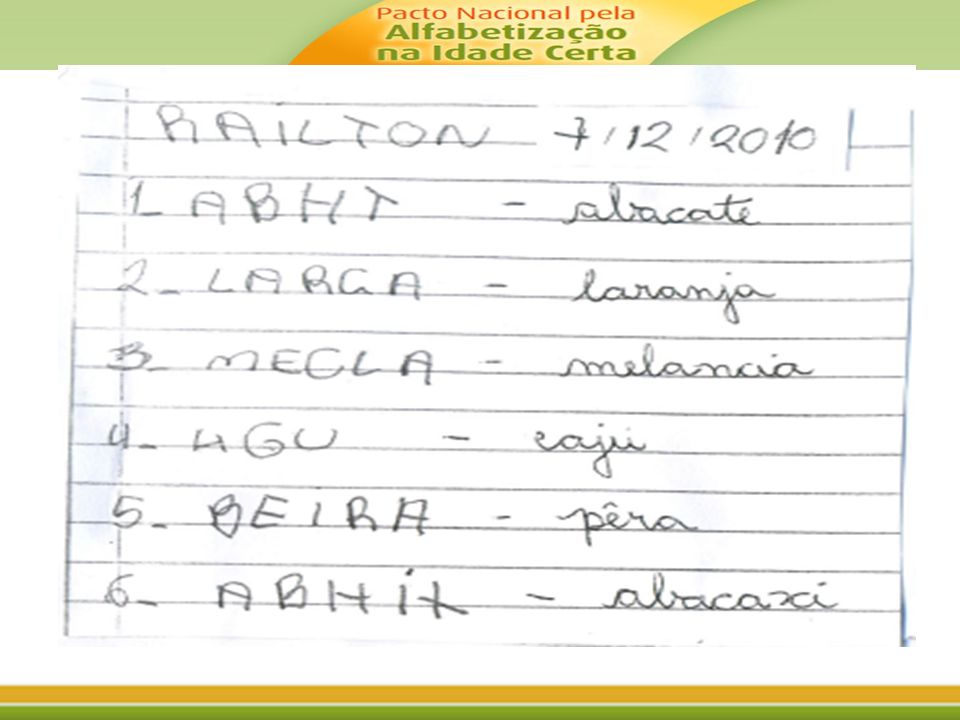 Pacto Nacional pela
Alfabetização
na Idade Certa
RAILTON 7/12/2010
1_ ABHT - abacate
2_ LARGA - laranja
3_ MECLA - melancia
4_ HGU - caju
5_ BEIRA - pêra
6_ ABHIX - abacaxi